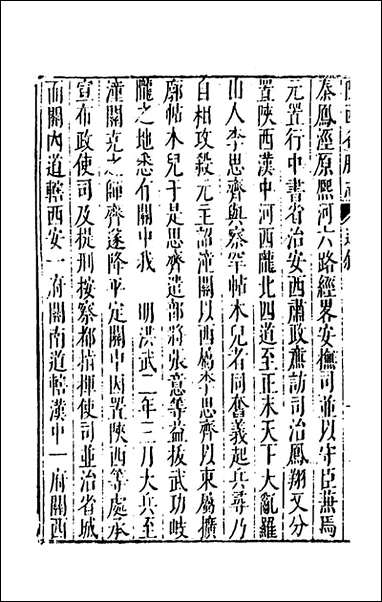 秦鳳涇原熙河六路經界安撫司並以守臣兼焉
元置行中書省治安西肅政廉訪司治鳳翔又分
置陝西漢中河西隴北四道至正末天下大亂羅
山人李思齊與察罕帖木兒者同奮義起兵尋乃
自相攻殺元主詔潼關以西屬李思齊以東屬擴
廓帖木兒于是思齊遣部將張意等益拔武功岐
隴之地悉有關中我 明洪武二年三月大兵至
潼關克之師齊遂降平定關中因置陝西等處承
宣布政使司及提刑按察都指揮使司並治省城
而關內道轄西安一府關南道轄漢中一府關西